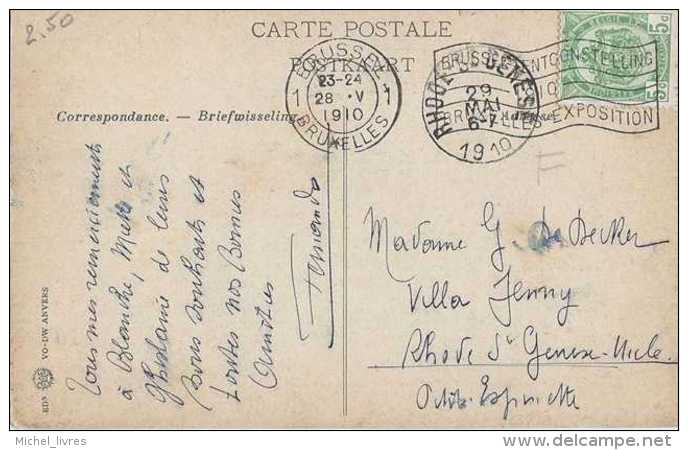 2.50
CARTE POSTALE
POSTKAART
BRUSSEL 1
23-24
28 V
1910
1 BRUXELLES
BRUSSEL TENTOONSTELLING
1910
BRUXELLES-EXPOSITION
RHODE-Sᵗ-GENESE
29
MAI
6-7
1910
5c
5c
Correspondance. — Briefwisseling
Tous mes remerciements
à Blanche, Mets et
Ghislaine de leurs
Bons souhaits et
toutes nos Bonnes
Amitiés
Fernande
F
Madame G. De Decker
Villa Jenny
Rhode Sᵗ Genese-Uccle
Petite Espinette
EDᴿ VO-DW ANVERS
Michel_livres
www.delcampe.net